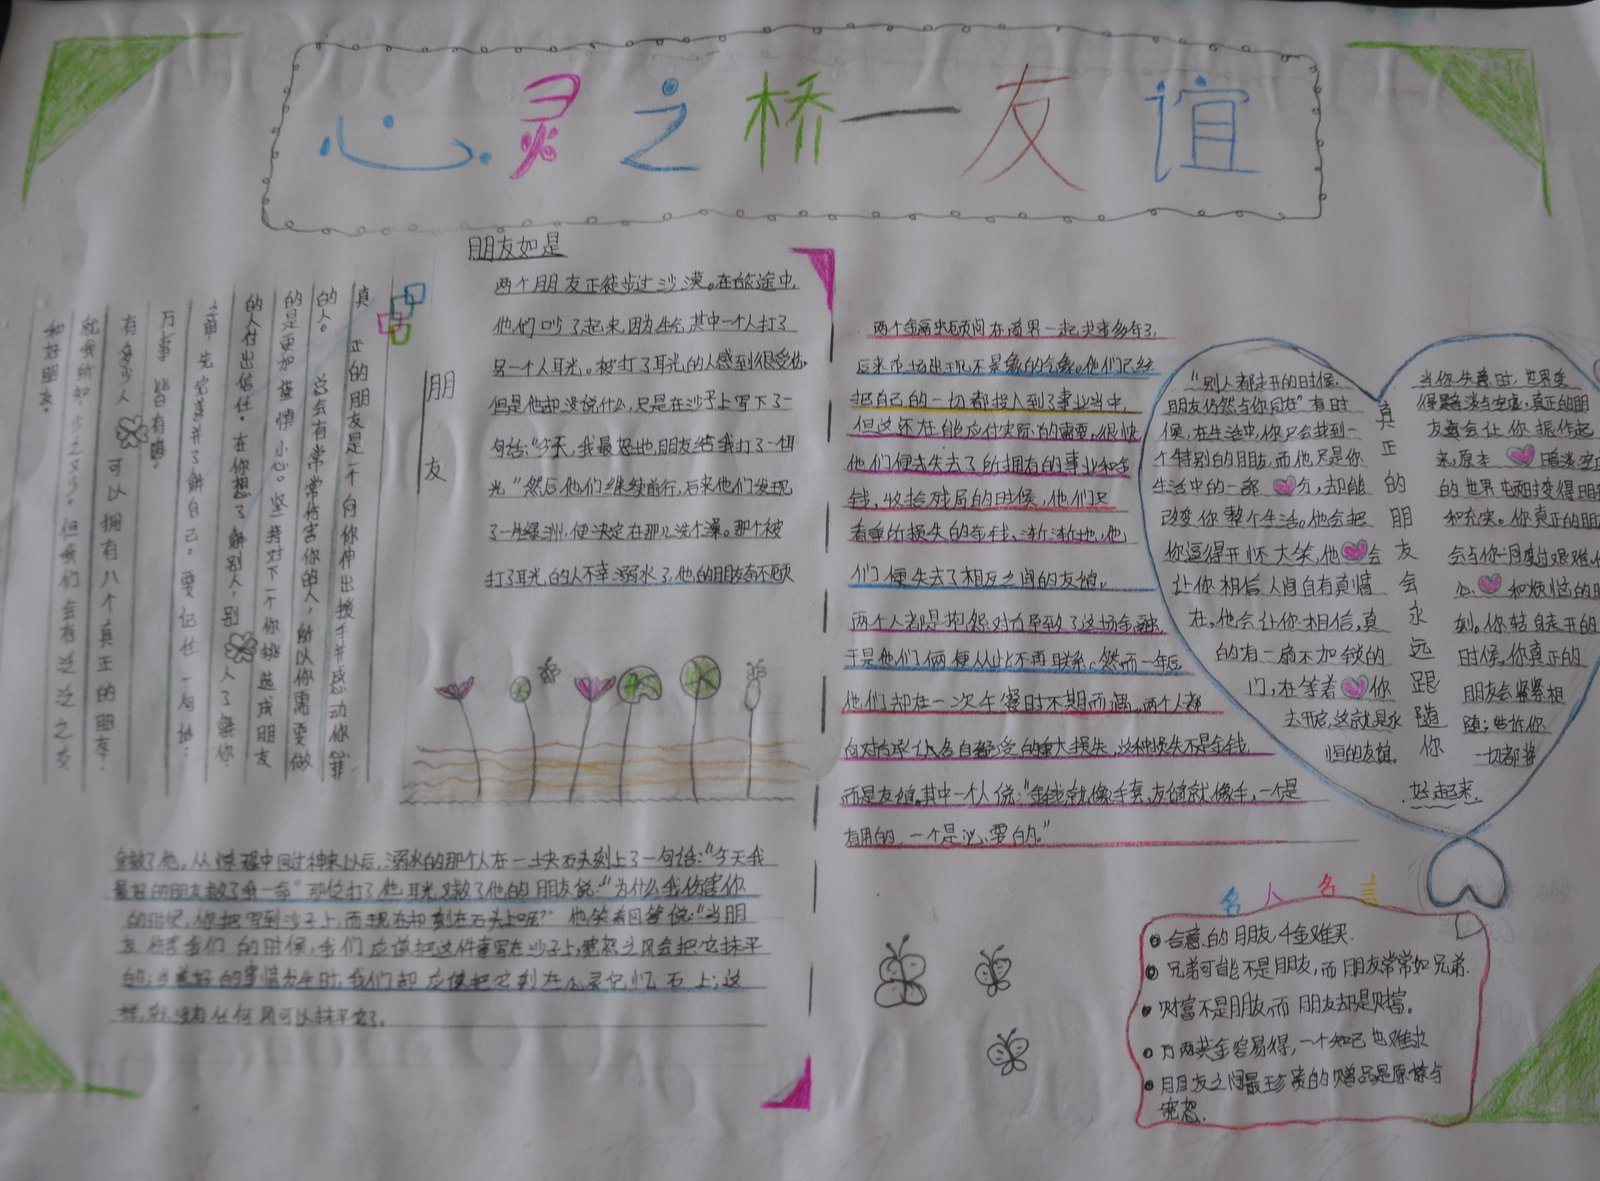 心灵之桥一友谊
朋友
真正的朋友是一个向你伸出援手并感动你心扉
的人。这会有常常伤害你的人,所以你需要做
的是更加谨慎小心。坚持对下一个你挑选成朋友
的人付出信任。在你想了解别人,别人了解你
之前,先完善并了解自己。要记住一句话:
万事皆有缘。
有多少人可以拥有八个真正的朋友?
就我所知,少之又少。但我们会有泛泛之交
和好朋友。
朋友如是
两个朋友正徒步过沙漠。在旅途中,
他们吵了起来,因为生气,其中一个人打了
另一个人耳光。被打了耳光的人感到很受伤,
但是他却没说什么,只是在沙子上写下了一
句话:“今天,我最好地朋友给我打了一个耳
光”然后他们继续前行,后来他们发现
了一片绿洲,便决定在那儿洗个澡。那个被
打了耳光的人不幸溺水了,他的朋友奋不顾
身救了他。从惊程中回过神来以后,溺水的那个人在一块石头刻上了一句话:“今天我
最好的朋友救了我一命”那位打了他耳光又救了他的朋友说:“为什么我伤害你
的时候,你把写到沙子上,而现在却刻在石头上呢?”他笑着回答说:“当朋
友伤害我们的时候,我们应该把这件事写在沙子上,宽恕之风会把它抹平
的;当美好的事情发生时,我们却应该把它刻在心灵记忆石上;这
样,就没有任何风可以抹平它了。
两个金融顾问在商界一起共事多年了,
后来市场出现不景气的气象。他们已经
把自己的一切都投入到了事业当中,
但这还在能应付实际的需要,很快
他们便去失去了所拥有的事业和金
钱,收拾残局的时候,他们只
看重所损失的金钱、渐渐地,他
们便失去了相互之间的友谊。
两个人都是抱怨对方导致了这场金融,
于是他们俩便从此不再联系。然而一年后
他们却在一次午餐时不期而遇。两个人都
向对方承认各自经受的重大损失,这种损失不是金钱
而是友谊。其中一个人说:“金钱就像手套,友谊就像手,一个是
有用的,一个是必要的。”
“别人都走开的时候,
朋友仍然与你同在”有时
候,在生活中,你只会找到一
个特别的朋友,而他只是你
生活中的一部分,却能
改变你整个生活。他会把
你逗得开怀大笑,他会
让你相信人间自有真情
在,他会让你相信,真
的有一扇不加锁的
门,在等着你
去开启,这就是永
恒的友谊。
真正的朋友会永远跟随你
当你失意时,世界变
得黯淡与空虚,真正的朋
友会让你振作起
来,原本黯淡空
的世界顿时变得明
和充实。你真正的朋
会与你一同度过艰难,
心和烦恼的
刻。你转身走开的
时候,你真正的
朋友会紧紧相
随;告诉你
一切都将
好起来.
名人名言
合意的朋友,千金难买.
兄弟可能不是朋友,而朋友常常如兄弟.
财富不是朋友,而朋友却是财富。
万两黄金容易得,一个知己也难求
朋友之间最珍贵的赠品是原谅与
宽恕.